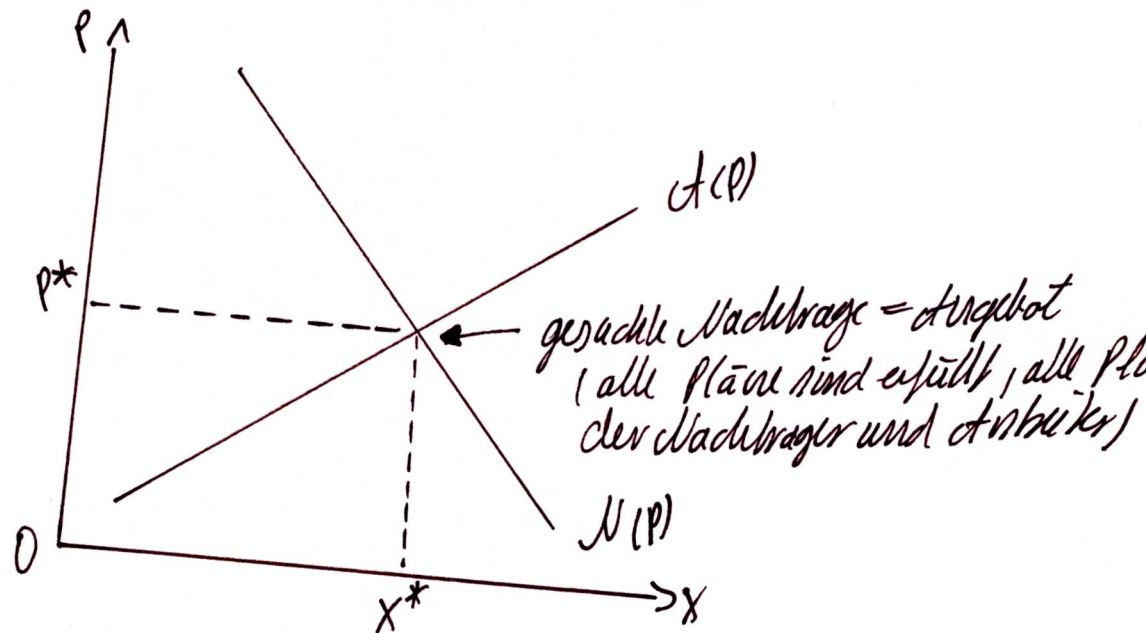 P
A(P)
P*
gesuchte Nachfrage = Angebot
(alle Pläne sind erfüllt, alle Plä
der Nachfrager und Anbieter)
N(P)
0
X*
X